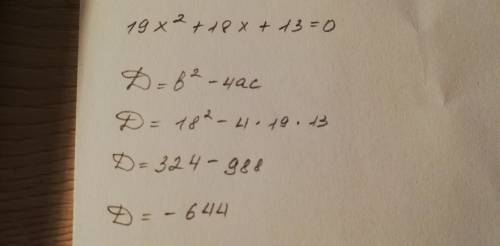 19x² + 18x + 13 = 0
D = b² - 4ac
D = 18² - 4 · 19 · 13
D = 324 - 988
D = - 644